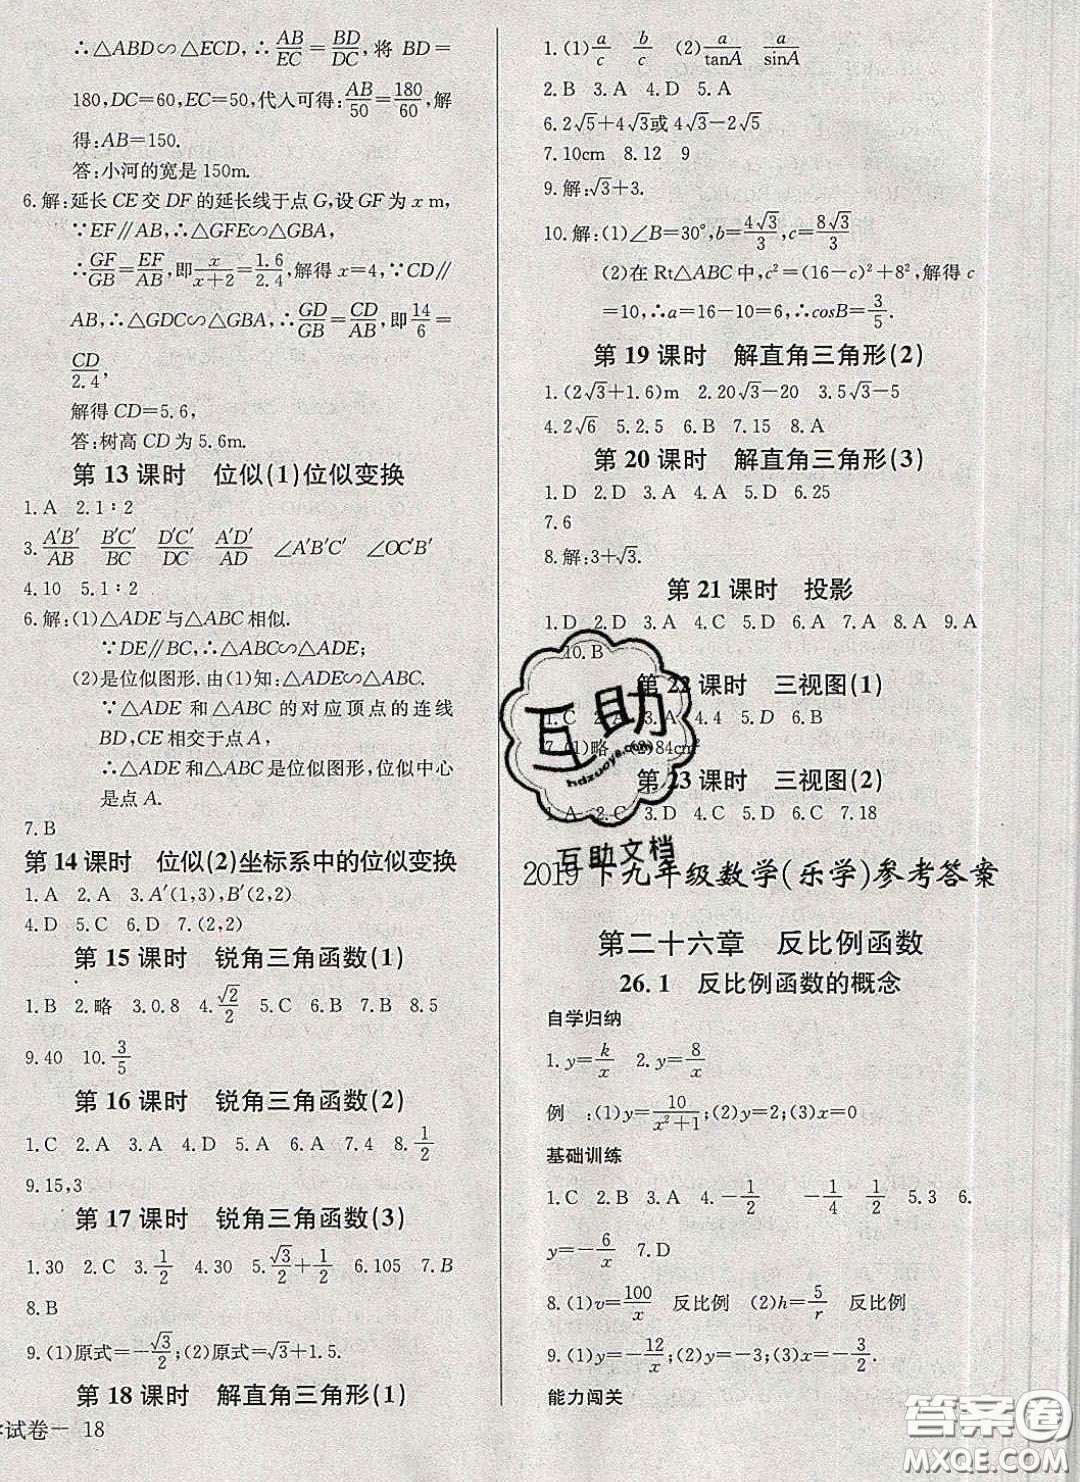 ∴△ABD∽△ECD,∴AB/EC=BD/DC,将 BD=
180,DC=60,EC=50,代人可得:AB/50=180/60,解
得:AB=150.
答:小河的宽是150m.
6.解:延长CE交DF的延长线于点G,设GF为x m,
∵EF∥AB,∴△GFE∽△GBA,
∴GF/GB=EF/AB,即x/(x+2)=1.6/2.4,解得x=4,∵CD∥
AB,∴△GDC∽△GBA,∴GD/GB=CD/AB,即14/6=
CD/2.4,
解得CD=5.6,
答:树高CD为5.6m.
第13课时 位似(1)位似变换
1.A 2.1∶2
3.A′B′/AB B′C′/BC D′C′/DC A′D′/AD ∠A′B′C′ ∠OC′B′
4.10 5.1∶2
6.解:(1)△ADE与△ABC相似.
∵DE∥BC,∴△ABC∽△ADE;
(2)是位似图形.由(1)知:△ADE∽△ABC.
∵△ADE和△ABC的对应顶点的连线
BD,CE相交于点A,
∴△ADE和△ABC是位似图形,位似中心
是点A.
7.B
第14课时 位似(2)坐标系中的位似变换
1.A 2.A 3.A′(1,3),B′(2,2)
4.D 5.C 6.D 7.(2,2)
第15课时 锐角三角函数(1)
1.B 2.略 3.0.8 4.√2/2 5.C 6.B 7.B 8.C
9.40 10.3/5
第16课时 锐角三角函数(2)
1.C 2.A 3.A 4.D 5.A 6.A 7.4 8.1/2
9.15,3
第17课时 锐角三角函数(3)
1.30 2.C 3.1/2 4.30 5.√3/2+1/2 6.105 7.B
8.B
9.(1)原式=-√3/2;(2)原式=√3+1.5.
第18课时 解直角三角形(1)
试卷— 18
1.(1)a/c b/c (2)a/tanA a/sinA
2.B 3.A 4.D 5.A
6.2√5+4√3或4√3-2√5
7.10cm 8.12 9
9.解:√3+3.
10.解:(1)∠B=30°,b=4√3/3,c=8√3/3
(2)在Rt△ABC中,c²=(16-c)²+8²,解得c
=10,∴a=16-10=6,∴cosB=3/5.
第19课时 解直角三角形(2)
1.(2√3+1.6)m 2.20√3-20 3.5√3-5
4.2√6 5.2.5 6.B 7.15 8.A
第20课时 解直角三角形(3)
1.D 2.D 3.A 4.D 5.D 6.25
7.6
8.解:3+√3.
第21课时 投影
1.D 2.D 3.A 4.C 5.D 6.D 7.A 8.A 9.A
10.B
第22课时 三视图(1)
1.C 2.A 3.A 4.4 5.D 6.B
7.(1)略 (2)84cm²
第23课时 三视图(2)
1.A 2.C 3.D 4.C 5.D 6.C 7.18
互助
hdzuoye.com
互助文档
2019下九年级数学(乐学)参考答案
第二十六章 反比例函数
26.1 反比例函数的概念
自学归纳
1.y=k/x 2.y=8/x
例 :(1)y=10/(x²+1);(2)y=2;(3)x=0
基础训练
1.C 2.B 3.A 4.-1/2 -1/4 1/2 5.3 6.
y=-6/x 7.D
8.(1)v=100/x 反比例 (2)h=5/r 反比例
9.(1)y=-12/x;(2)y=-3;(3)x=-3/2.
能力闯关
答案圈
MXQE.COM